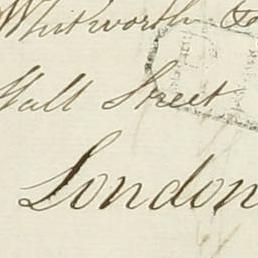 Whitworth &
Wall Street
London